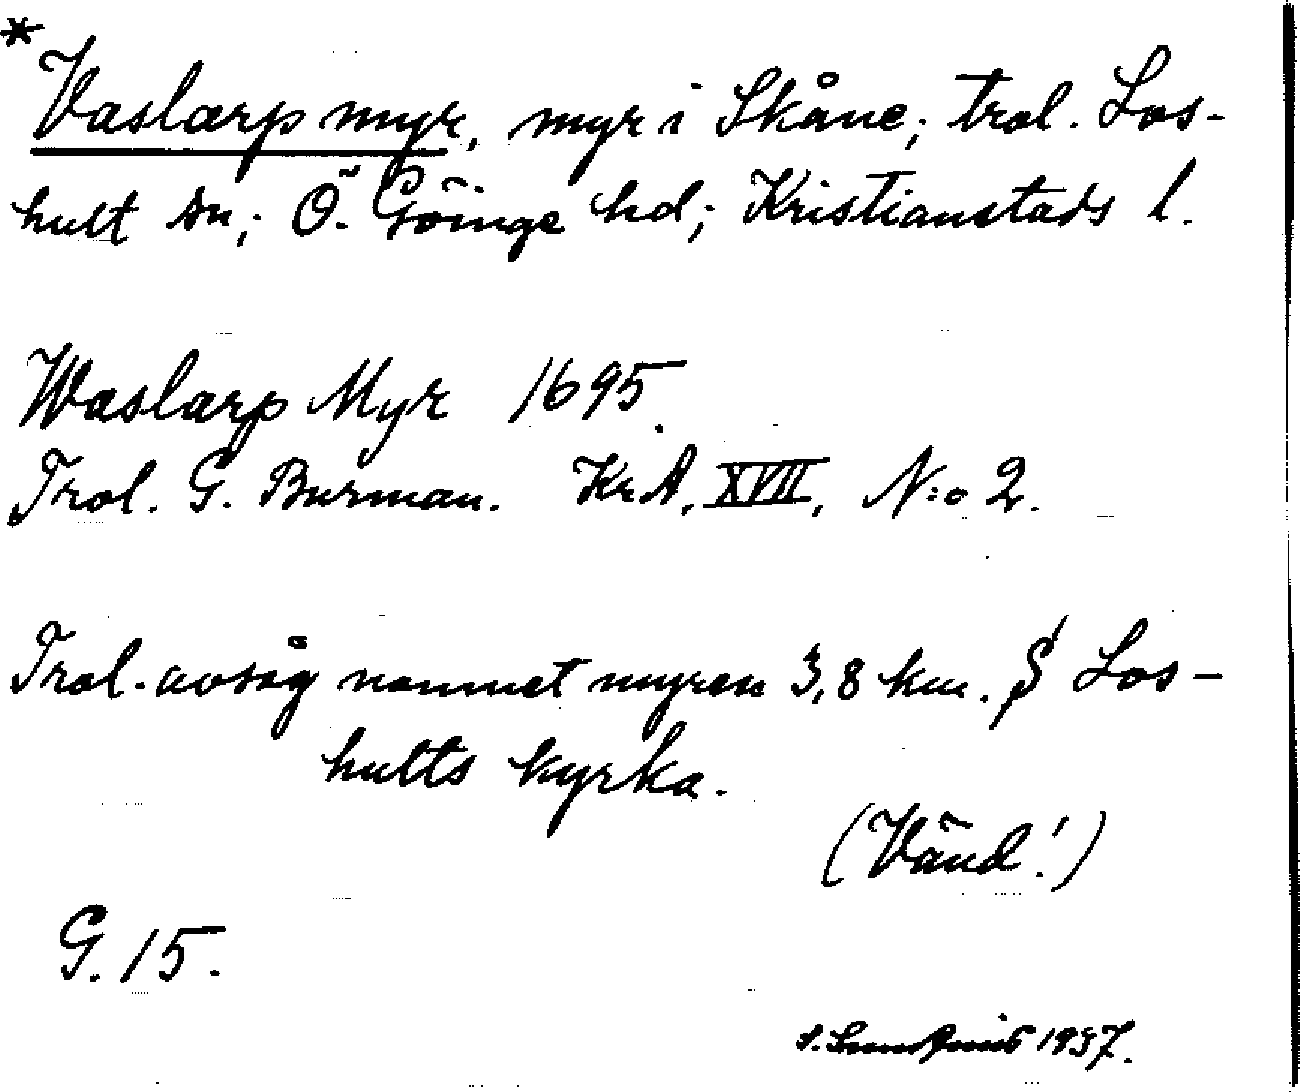 *
Vaslarp myr, myr i Skåne; trol. Los-
hult sn; Ö. Göinge hd; Kristianstads l.
Waslarp Myr 1695.
Trol. G. Burman. KrA, XVII, N:o 2.
Trol. avsåg namnet myren 3,8 km. S Los-
hults kyrka.
(Vänd!)
G. 15.
1937.